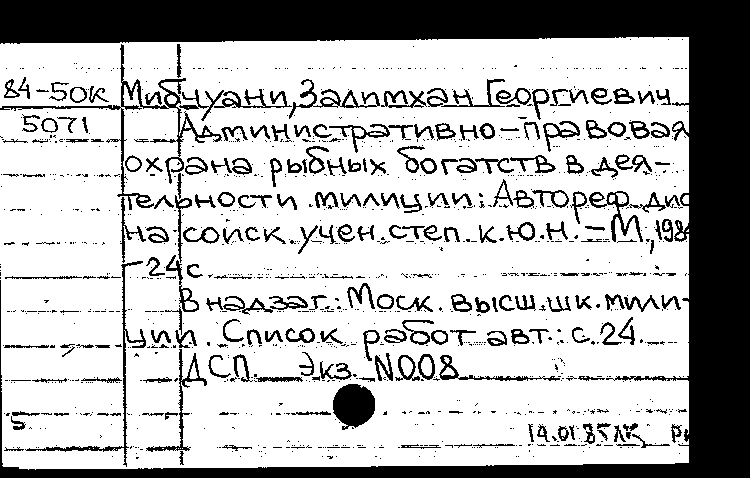 84-50к Мибчуани, Залимхан Георгиевич
5071 Административно-правовая
охрана рыбных богатств в дея-
тельности милиции: Автореф. дис
на соиск. учен. степ. к.ю.н. - М., 1984
-24с
В надзаг.: Моск. высш. шк. мили-
ции. Список работ авт.: с. 24.
ДСП. Экз. N008
5
14.01.85